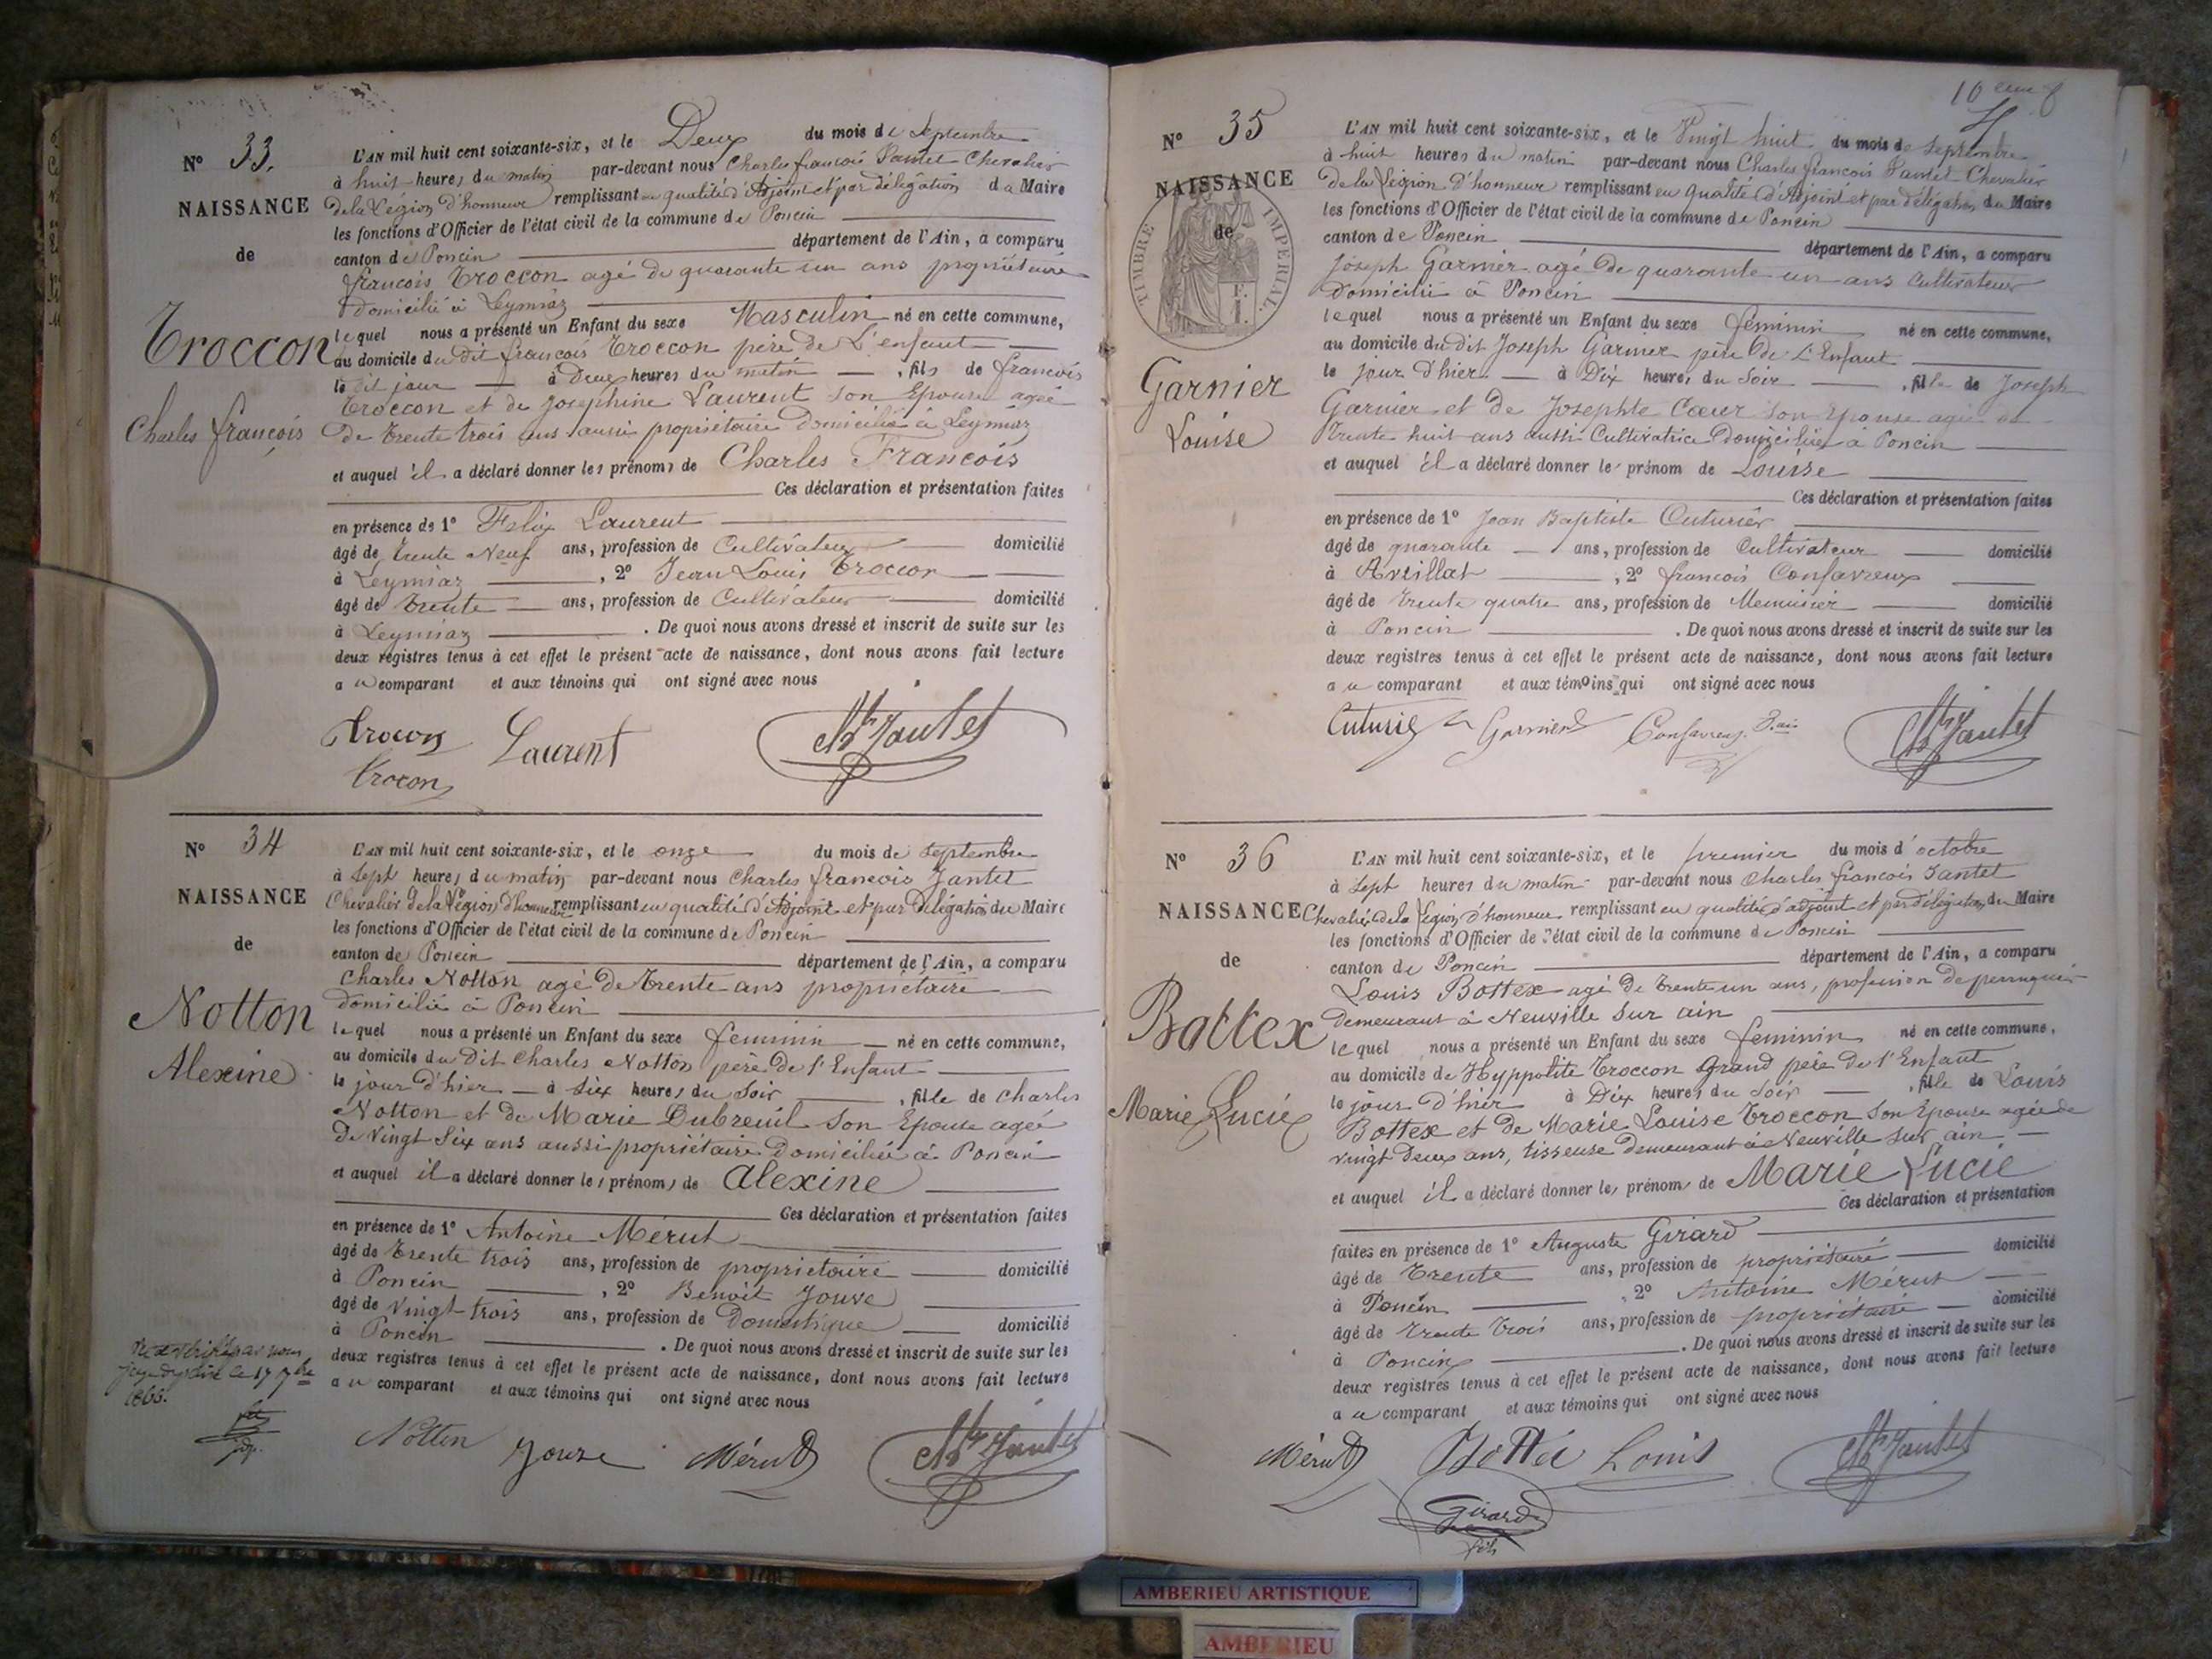 N° 33.
NAISSANCE
de
Troccon
Charles françois
L'AN mil huit cent soixante-six, et le Deux du mois de Septembre
à huit heures du matin par-devant nous Charles françois Jantet Chevalier
de la Légion d'honneur remplissant en qualité d'Adjoint et par délégation du Maire
les fonctions d'Officier de l'état civil de la commune de Poncin
canton de Poncin département de l'Ain, a comparu
françois Troccon agé de quarante un ans propriétaire
domicilié à Leymiaz
lequel nous a présenté un Enfant du sexe Masculin né en cette commune,
au domicile du dit françois Troccon père de L'enfant
le dit jour à Deux heures du matin, fils de françois
Troccon et de Josephine Laurent son Epouse agée
de trente trois ans aussi propriétaire domiciliée à Leymiaz
et auquel il a déclaré donner les prénoms de Charles François
Ces déclaration et présentation faites
en présence de 1° Felix Laurent
âgé de trente Neuf ans, profession de Cultivateur domicilié
à Leymiaz, 2° Jean Louis Troccon
âgé de trente ans, profession de Cultivateur domicilié
à Leymiaz. De quoi nous avons dressé et inscrit de suite sur les
deux registres tenus à cet effet le présent acte de naissance, dont nous avons fait lecture
au comparant et aux témoins qui ont signé avec nous
trocon Laurent Ch Jantet
trocon
N° 34
NAISSANCE
de
Notton
Alexine
L'AN mil huit cent soixante-six, et le onze du mois de Septembre
à Sept heures du matin par-devant nous Charles françois Jantet
Chevalier de la Légion d'honneur remplissant en qualité d'Adjoint et par Délégation du Maire
les fonctions d'Officier de l'état civil de la commune de Poncin
canton de Poncin département de l'Ain, a comparu
Charles Notton agé de trente ans propriétaire
domicilié à Poncin
lequel nous a présenté un Enfant du sexe feminin né en cette commune,
au domicile du dit Charles Notton père de l'Enfant
le jour d'hier à Six heures du Soir, fille de Charles
Notton et de Marie Dubreuil Son Epouse agée
de vingt Six ans aussi propriétaire domiciliée à Poncin
et auquel il a déclaré donner les prénoms de Alexine
Ces déclaration et présentation faites
en présence de 1° Antoine Mérut
âgé de trente trois ans, profession de propriétaire domicilié
à Poncin, 2° Benoit Jouve
âgé de vingt trois ans, profession de Domestique domicilié
à Poncin. De quoi nous avons dressé et inscrit de suite sur les
deux registres tenus à cet effet le présent acte de naissance, dont nous avons fait lecture
au comparant et aux témoins qui ont signé avec nous
par nous
le 17 7bre
1866.
Notton Jouve Mérut Ch Jantet
N° 35
NAISSANCE
de
TIMBRE IMPERIAL
Garnier
Louise
L'AN mil huit cent soixante-six, et le Vingt huit du mois de Septembre
à huit heures du matin par-devant nous Charles françois Jantet Chevalier
de la Légion d'honneur remplissant en qualité d'Adjoint et par délégation du Maire
les fonctions d'Officier de l'état civil de la commune de Poncin
canton de Poncin département de l'Ain, a comparu
Joseph Garnier agé de quarante un ans cultivateur
domicilié à Poncin
lequel nous a présenté un Enfant du sexe féminin né en cette commune,
au domicile du dit Joseph Garnier père de L'Enfant
le jour d'hier à Dix heures du Soir, fille de Joseph
Garnier et de Josephte Cœur son Epouse agée de
trente huit ans aussi Cultivatrice domiciliée à Poncin
et auquel il a déclaré donner le prénom de Louise
Ces déclaration et présentation faites
en présence de 1° Jean Baptiste Cuturier
âgé de quarante ans, profession de Cultivateur domicilié
à Avrillat, 2° françois Confavreux
âgé de trente quatre ans, profession de Menuisier domicilié
à Poncin. De quoi nous avons dressé et inscrit de suite sur les
deux registres tenus à cet effet le présent acte de naissance, dont nous avons fait lecture
au comparant et aux témoins qui ont signé avec nous
Cuturie Garnier Confavreux Ch Jantet
N° 36
NAISSANCE
de
Bottex
Marie Lucie
L'AN mil huit cent soixante-six, et le premier du mois d'octobre
à Sept heures du matin par-devant nous Charles françois Jantet
Chevalier de la Légion d'honneur remplissant en qualité d'adjoint et par délégation du Maire
les fonctions d'Officier de l'état civil de la commune de Poncin
canton de Poncin département de l'Ain, a comparu
Louis Bottex agé de trente un ans, profession de perruquier
demeurant à Neuville sur ain
lequel nous a présenté un Enfant du sexe feminin né en cette commune,
au domicile de Hyppolite Troccon Grand père de l'Enfant
le jour d'hier à Dix heures du Soir, fille de Louis
Bottex et de Marie Louise Troccon Son Epouse agée de
vingt deux ans, tisseuse demeurant à Neuville sur ain
et auquel il a déclaré donner les prénoms de Marie Lucie
Ces déclaration et présentation
faites en présence de 1° Auguste Girard
âgé de trente ans, profession de propriétaire domicilié
à Poncin, 2° Antoine Mérut
âgé de trente trois ans, profession de propriétaire domicilié
à Poncin. De quoi nous avons dressé et inscrit de suite sur les
deux registres tenus à cet effet le présent acte de naissance, dont nous avons fait lecture
au comparant et aux témoins qui ont signé avec nous
Mérut Bottex Louis Ch Jantet
Girard
fils
AMBERIEU ARTISTIQUE
AMBERIEU